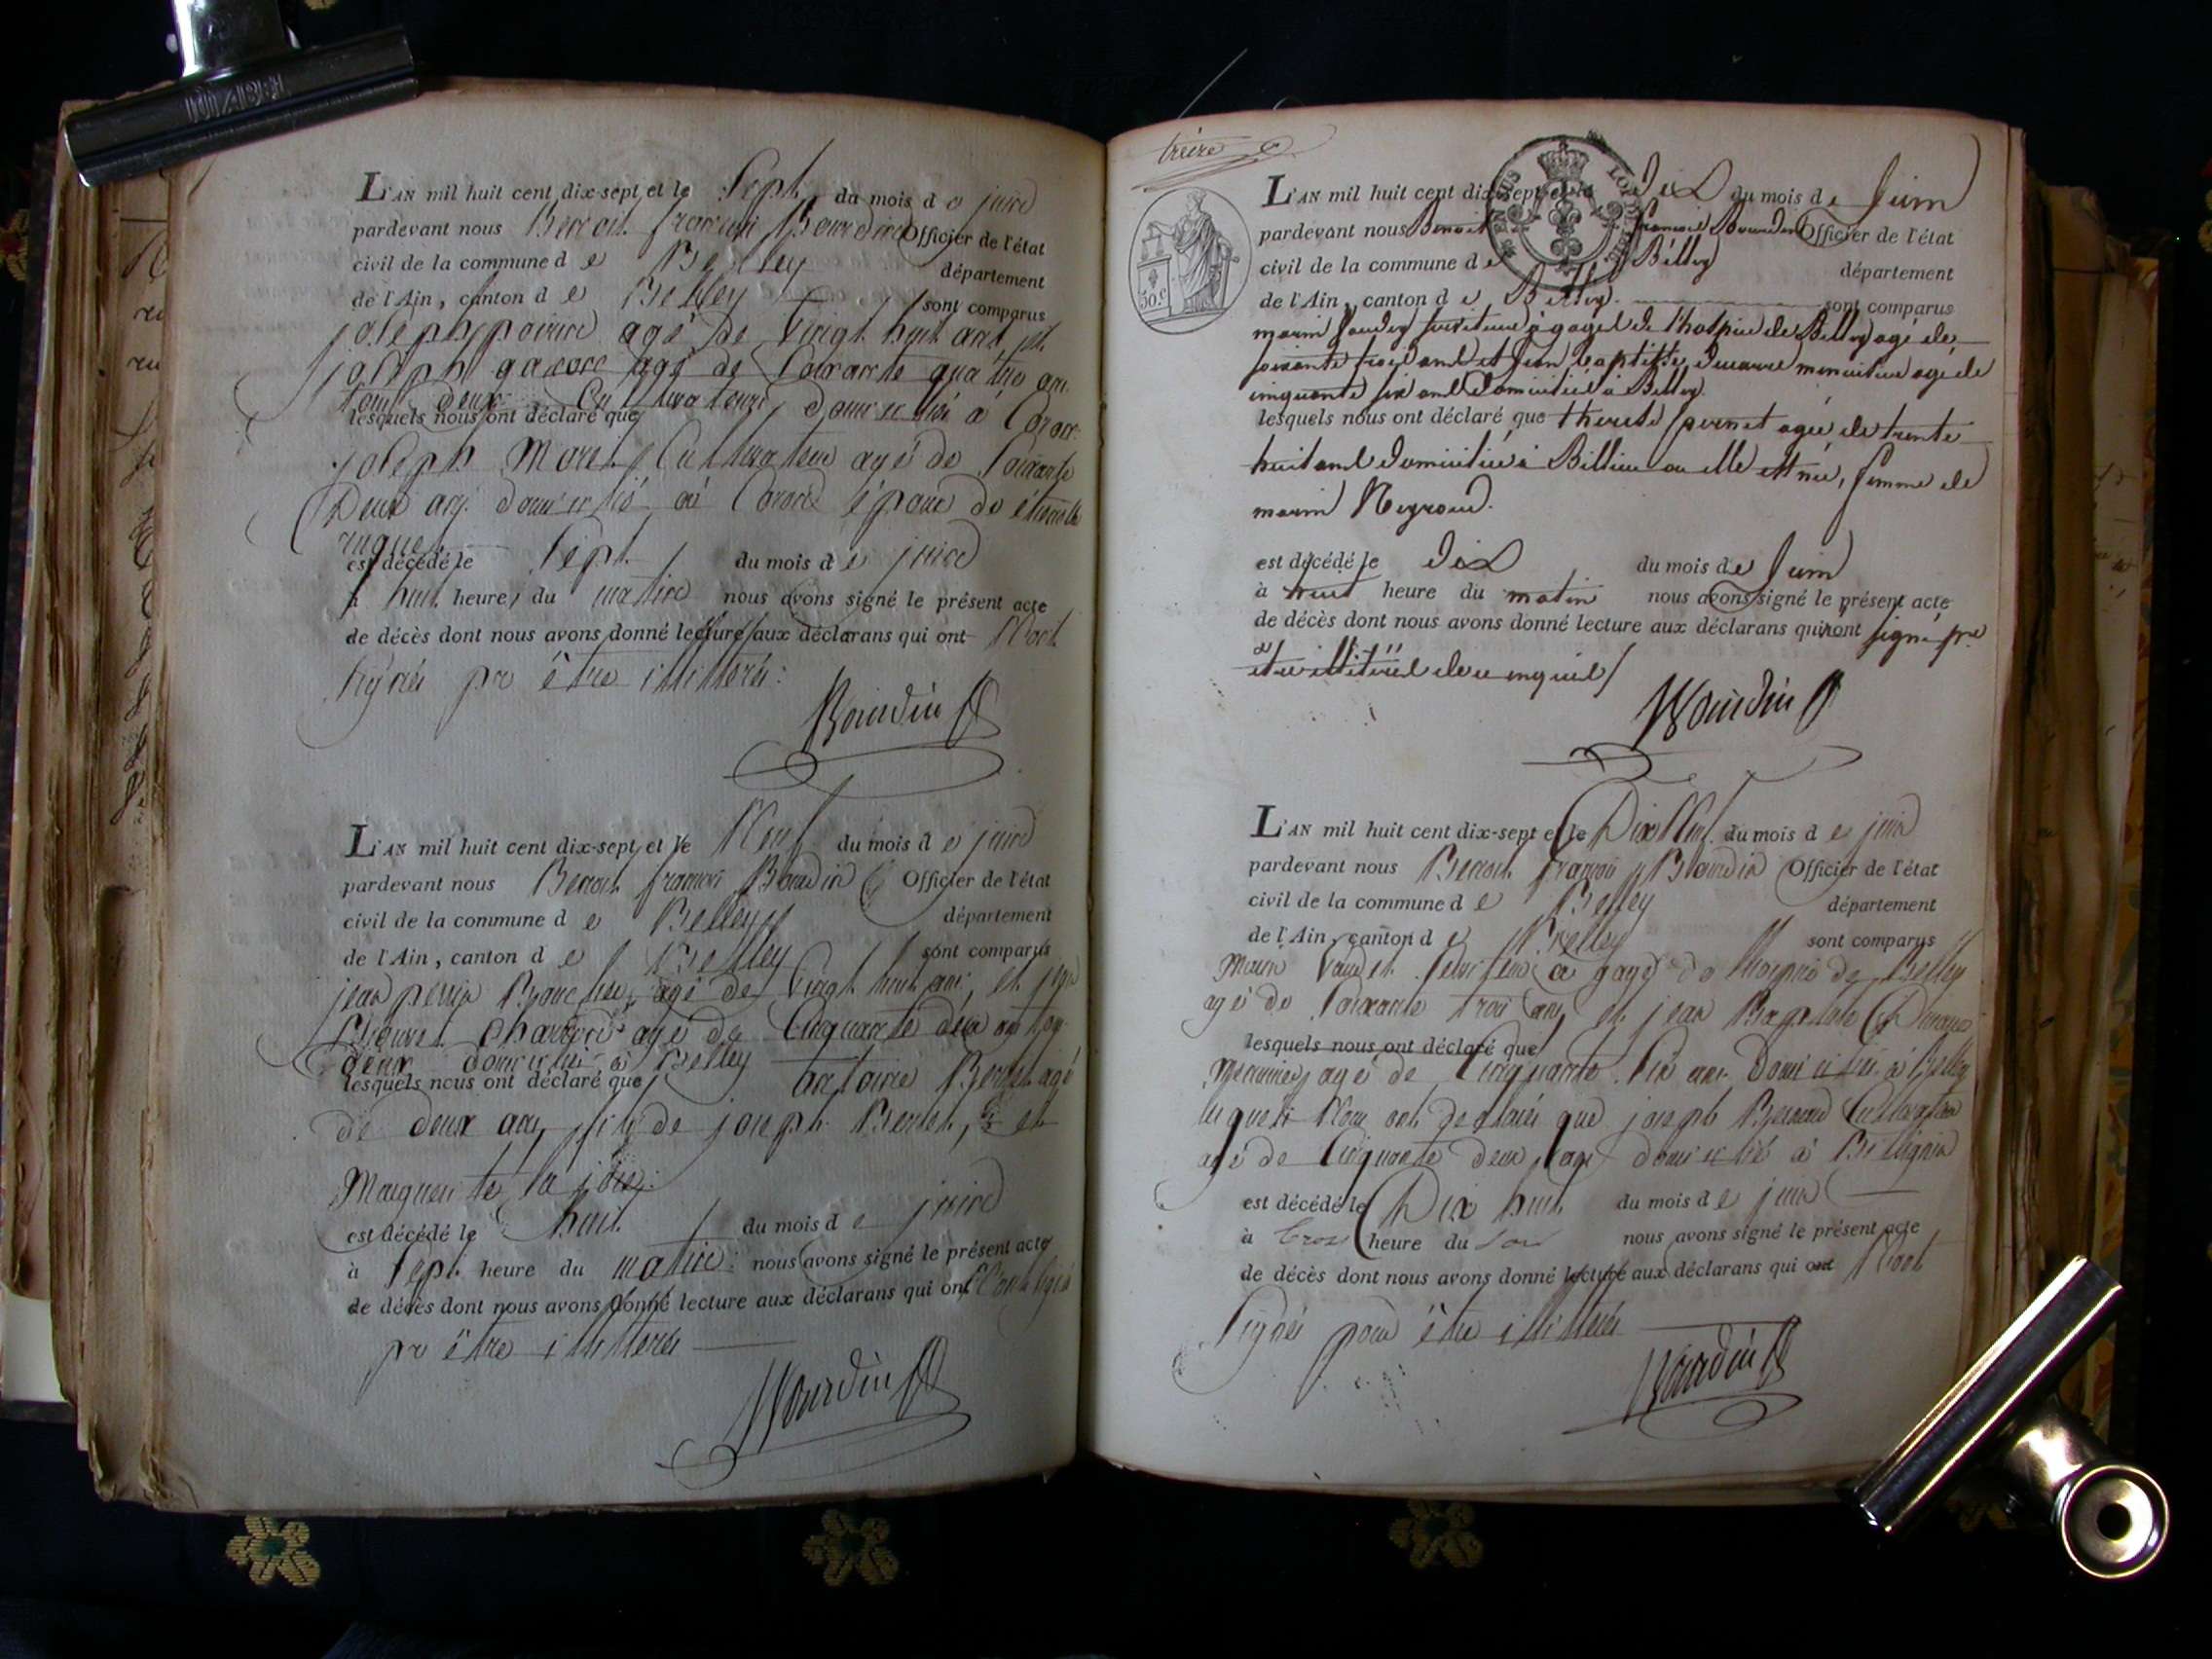 L'AN mil huit cent dix-sept et le Sept du mois de juin
pardevant nous Benoit francois Bourdin Officier de l'état
civil de la commune de Belley département
de l'Ain, canton de Belley sont comparus
joseph poirin agé de Vingt huit ans et
joseph gacon agé de Soixante quatre an
tous deux Cultivateurs, domiciliés à Coron
lesquels nous ont déclaré que
joseph Moret Cultivateur agé de Soixante
Deux ans domicilié à Coron époux de
est décédé le Sept du mois de juin
à huit heures du matin nous avons signé le présent acte
de décès dont nous avons donné lecture aux déclarans qui ont Non
Signés pr être illitterés
Bourdin
L'AN mil huit cent dix-sept et le Neuf du mois de juin
pardevant nous Benoit francois Bourdin Officier de l'état
civil de la commune de Belley département
de l'Ain, canton de Belley sont comparus
jean perrin agé de Vingt huit ans, et
agé de Cinquante deux an tou
deux domiciliés à Belley
lesquels nous ont déclaré que antoine Bernet agé
de deux ans, fils de joseph Bernet, et
Marguerite la joie
est décédé le huit du mois de juin
à Sept heure du matin nous avons signé le présent acte
de décès dont nous avons donné lecture aux déclarans qui ont Non Signé
pr être illitterés
Bourdin
treize
L'AN mil huit cent dix-sept et le dix du mois de Juin
pardevant nous Benoit francois Bourdin Officier de l'état
civil de la commune de Belley département
de l'Ain, canton de Belley sont comparus
50 c
marin Vaudey serviteur à gages de l'hospice de Belley agé de
soixante trois ans et Jean baptiste menuisier agé de
cinquante six ans domiciliés à Belley
lesquels nous ont déclaré que therese pernet agée de trente
huit ans domiciliée à Billieu ou elle est née, femme de
marin Neyroud
est décédé le dix du mois de Juin
à huit heure du matin nous avons signé le présent acte
de décès dont nous avons donné lecture aux déclarans qui n'ont signé pr
etre illitérés de ce enquis
Bourdin
L'AN mil huit cent dix-sept et le Dix Neuf du mois de juin
pardevant nous Benoit francois Bourdin Officier de l'état
civil de la commune de Belley département
de l'Ain, canton de Belley sont comparus
Marin Serviteur a gage de l'hospice de Belley
agé de Soixante trois ans et jean Baptiste
lesquels nous ont déclaré que
agé de Cinquante Six ans Domiciliés à Belley
lequels Nous ont déclaré que joseph Bernard Cultivateur
agé de Cinquante deux ans domicilié à Billignin
est décédé le Dix huit du mois de juin
à trois heure du soir nous avons signé le présent acte
de décès dont nous avons donné lecture aux déclarans qui ont Non
Signés pour être illitterés
Bourdin